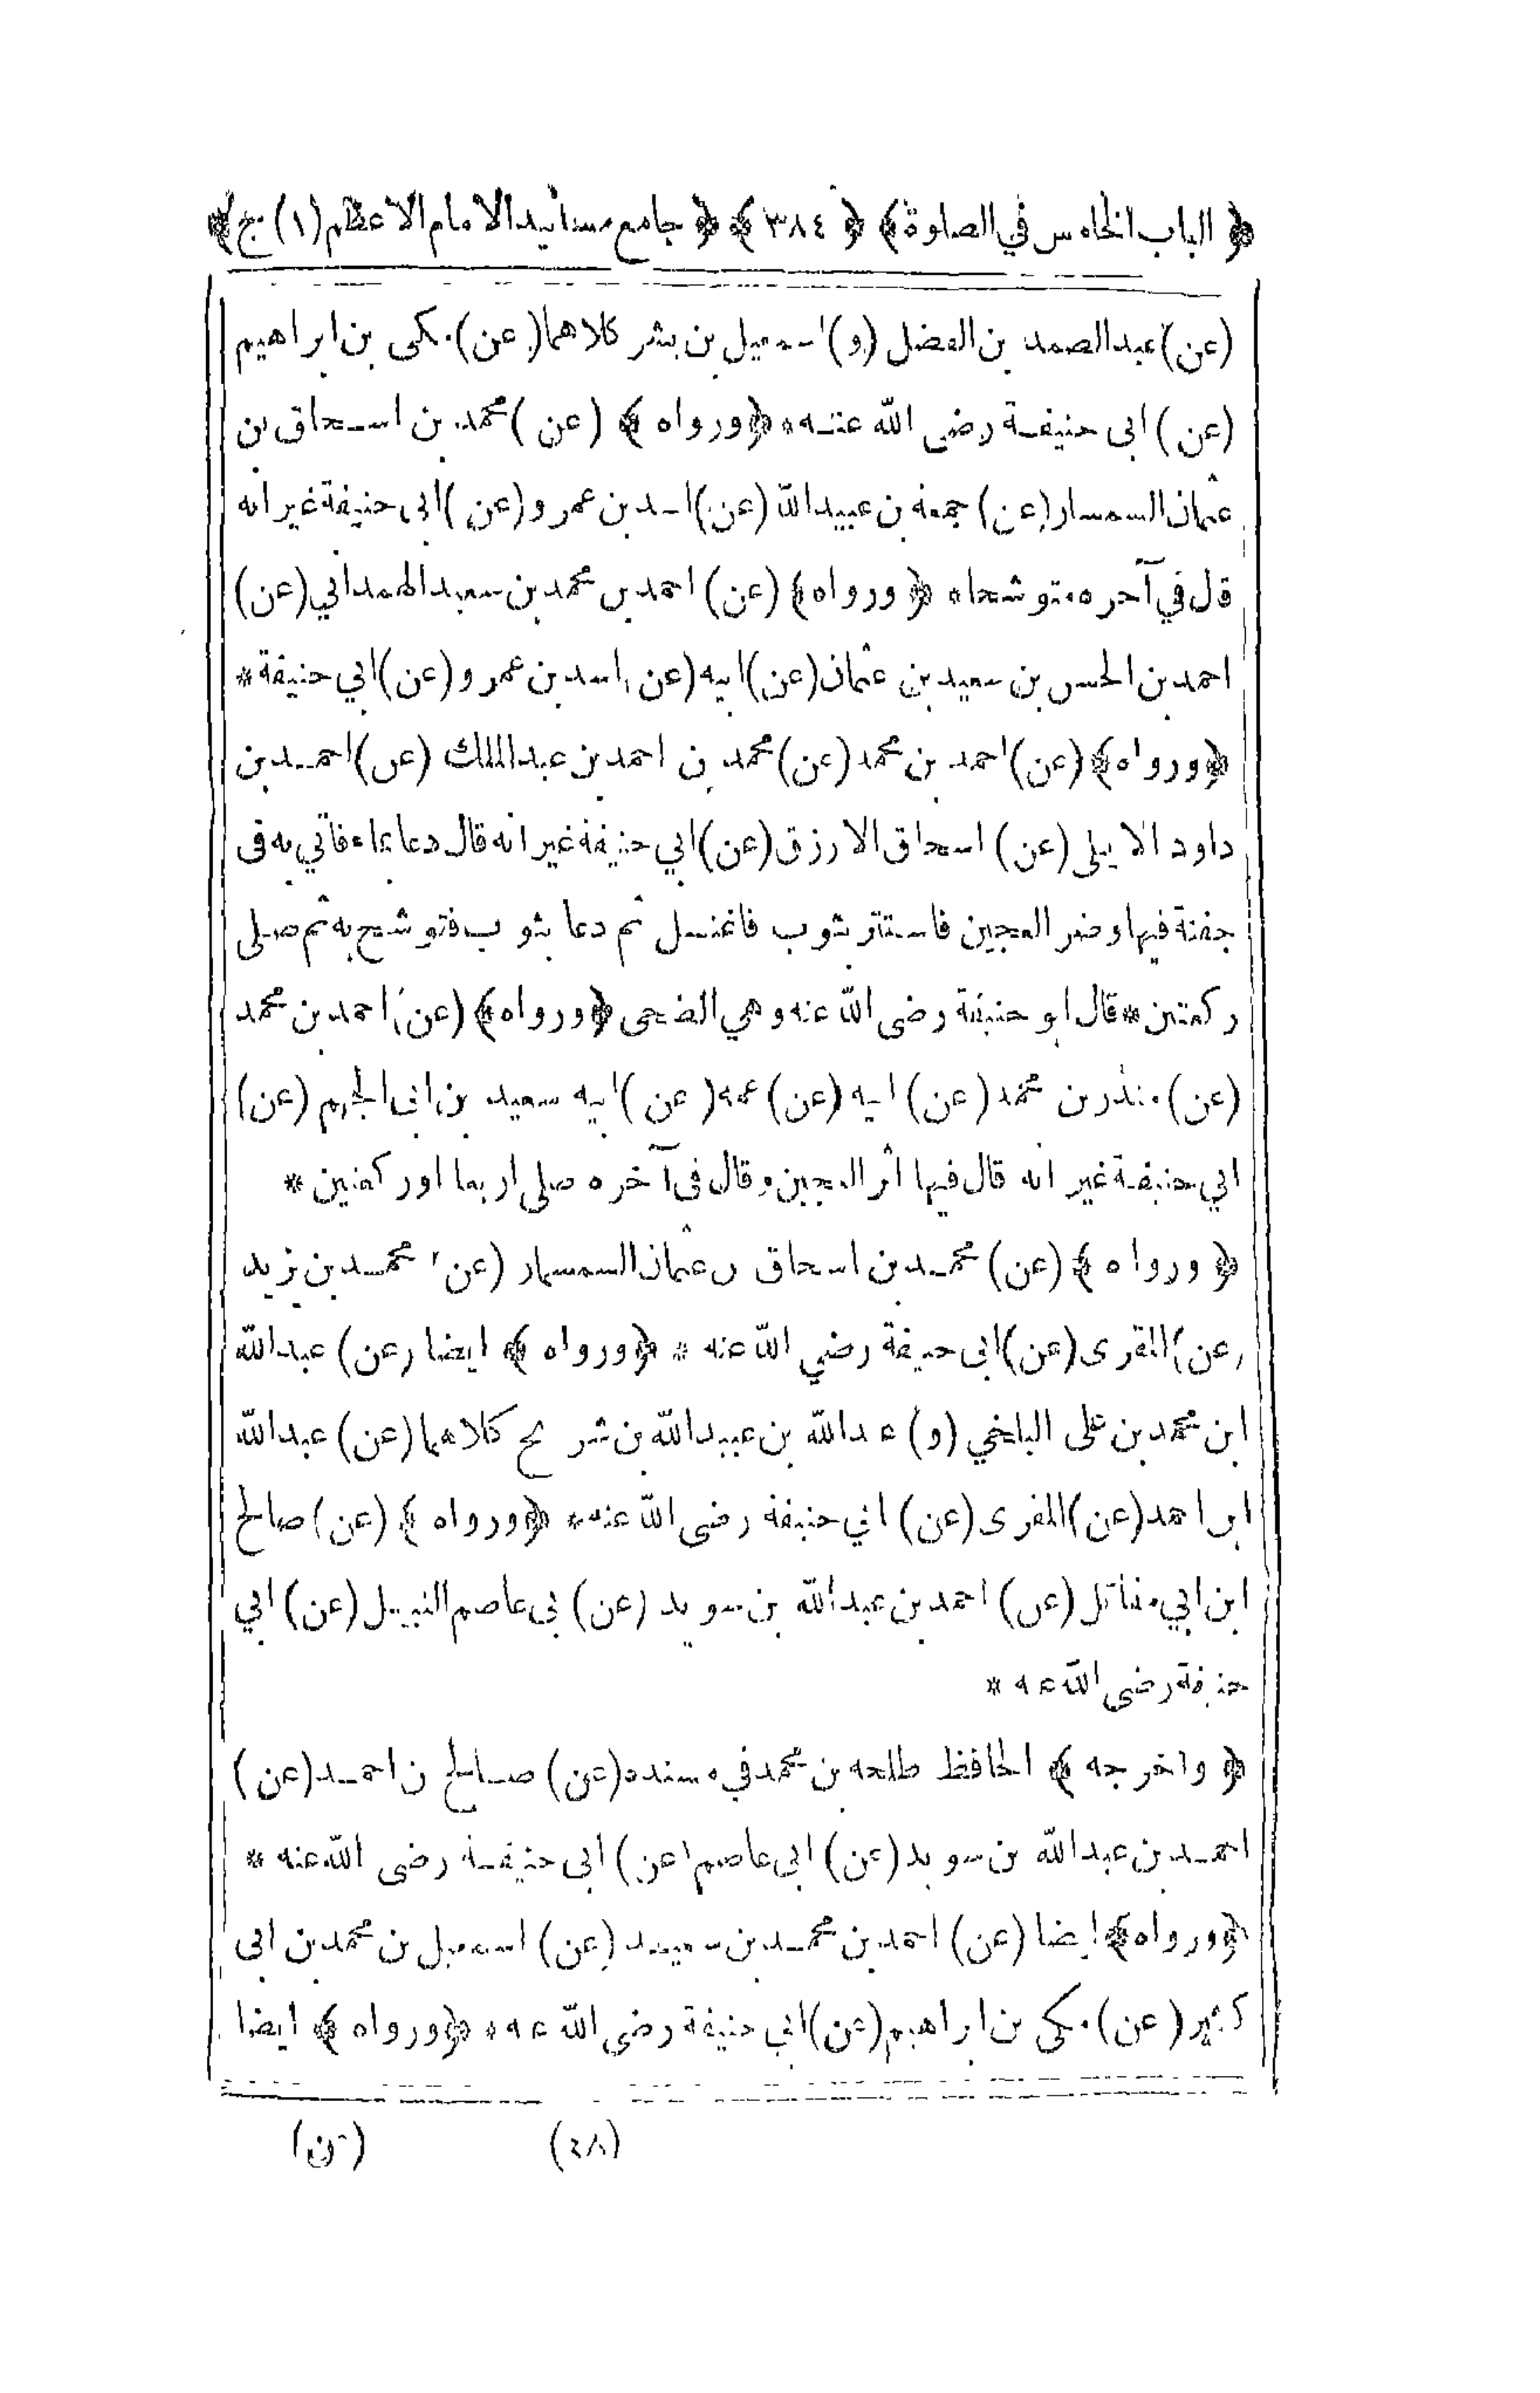 ﴿ الباب الخامس في الصلوة ﴾ ﴿ ٣٨٤ ﴾ ﴿ جامع مسانيد الامام الاعظم (١) ج ﴾
(عن) عبد الصمد بن الفضل (و) اسمعيل بن بشر كلاهما (عن) مكى بن ابراهيم
(عن) ابى حنيفة رضى الله عنه * ﴿ ورواه ﴾ (عن) محمد بن اسحاق بن
عثمان السمسار (عن) جمعة بن عبيد الله (عن) اسد بن عمرو (عن) ابى حنيفة غير انه
قال في آخره متوشحا * ﴿ ورواه ﴾ (عن) احمد بن محمد بن سعيد الهمداني (عن)
احمد بن الحسن بن سعيد بن عثمان (عن) ابيه (عن) اسد بن عمرو (عن) ابي حنيفة *
﴿ ورواه ﴾ (عن) احمد بن محمد (عن) محمد بن احمد بن عبد الملك (عن) احمد بن
داود الايلى (عن) اسحاق الازرق (عن) ابي حنيفة غير انه قال دعا بماء فاتي به فى
جفنة فيها وضر العجين فاستتر بثوب فاغتسل ثم دعا بثوب فتوشح به ثم صلى
ركعتين * قال ابو حنيفة رضى الله عنه وهي الضحى ﴿ ورواه ﴾ (عن) احمد بن محمد
(عن) منذر بن محمد (عن) ابيه (عن) عمه (عن) ابيه سعيد بن ابى الجهم (عن)
ابي حنيفة غير انه قال فيها اثر العجين وقال فى آخره صلى اربعا او ركعتين *
﴿ ورواه ﴾ (عن) محمد بن اسحاق بن عثمان السمسار (عن) محمد بن يزيد
(عن) المقرى (عن) ابى حنيفة رضي الله عنه * ﴿ ورواه ﴾ ايضا (عن) عبد الله
ابن محمد بن على البلخي (و) عبد الله بن عبيد الله بن شريح كلاهما (عن) عبد الله
ابن احمد (عن) المقرى (عن) ابي حنيفة رضى الله عنه * ﴿ ورواه ﴾ (عن) صالح
ابن ابي مقاتل (عن) احمد بن عبد الله بن سويد (عن) ابى عاصم النبيل (عن) ابي
حنيفة رضى الله عنه *
﴿ واخرجه ﴾ الحافظ طلحة بن محمد في مسنده (عن) صالح بن احمد (عن)
احمد بن عبد الله بن سويد (عن) ابى عاصم (عن) ابى حنيفة رضى الله عنه *
﴿ ورواه ﴾ ايضا (عن) احمد بن محمد بن سعيد (عن) اسمعيل بن محمد بن ابى
كثير (عن) مكى بن ابراهيم (عن) ابي حنيفة رضى الله عنه * ﴿ ورواه ﴾ ايضا
(٤٨)